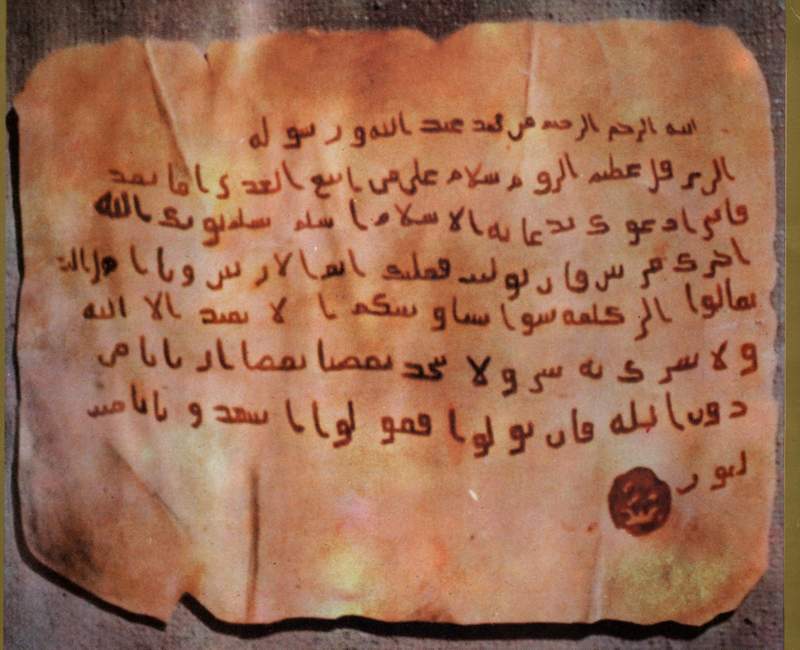 الله الرحمن الرحيم من محمد عبد الله و رسوله
الى هرقل عظيم الروم سلام على من اتبع الهدى اما بعد
فاني ادعوك بدعاية الاسلام اسلم تسلم يوتك الله
اجرك مرتين فان توليت فعليك اثم الاريسين و يا اهل
تعالوا الى كلمة سوا بيننا و بينكم الا نعبد الا الله
ولا نشرك به شي و لا يتخذ بعضنا بعضا اربابا من
دون الله فان تولوا فقولوا اشهدو بانا مس
لمون